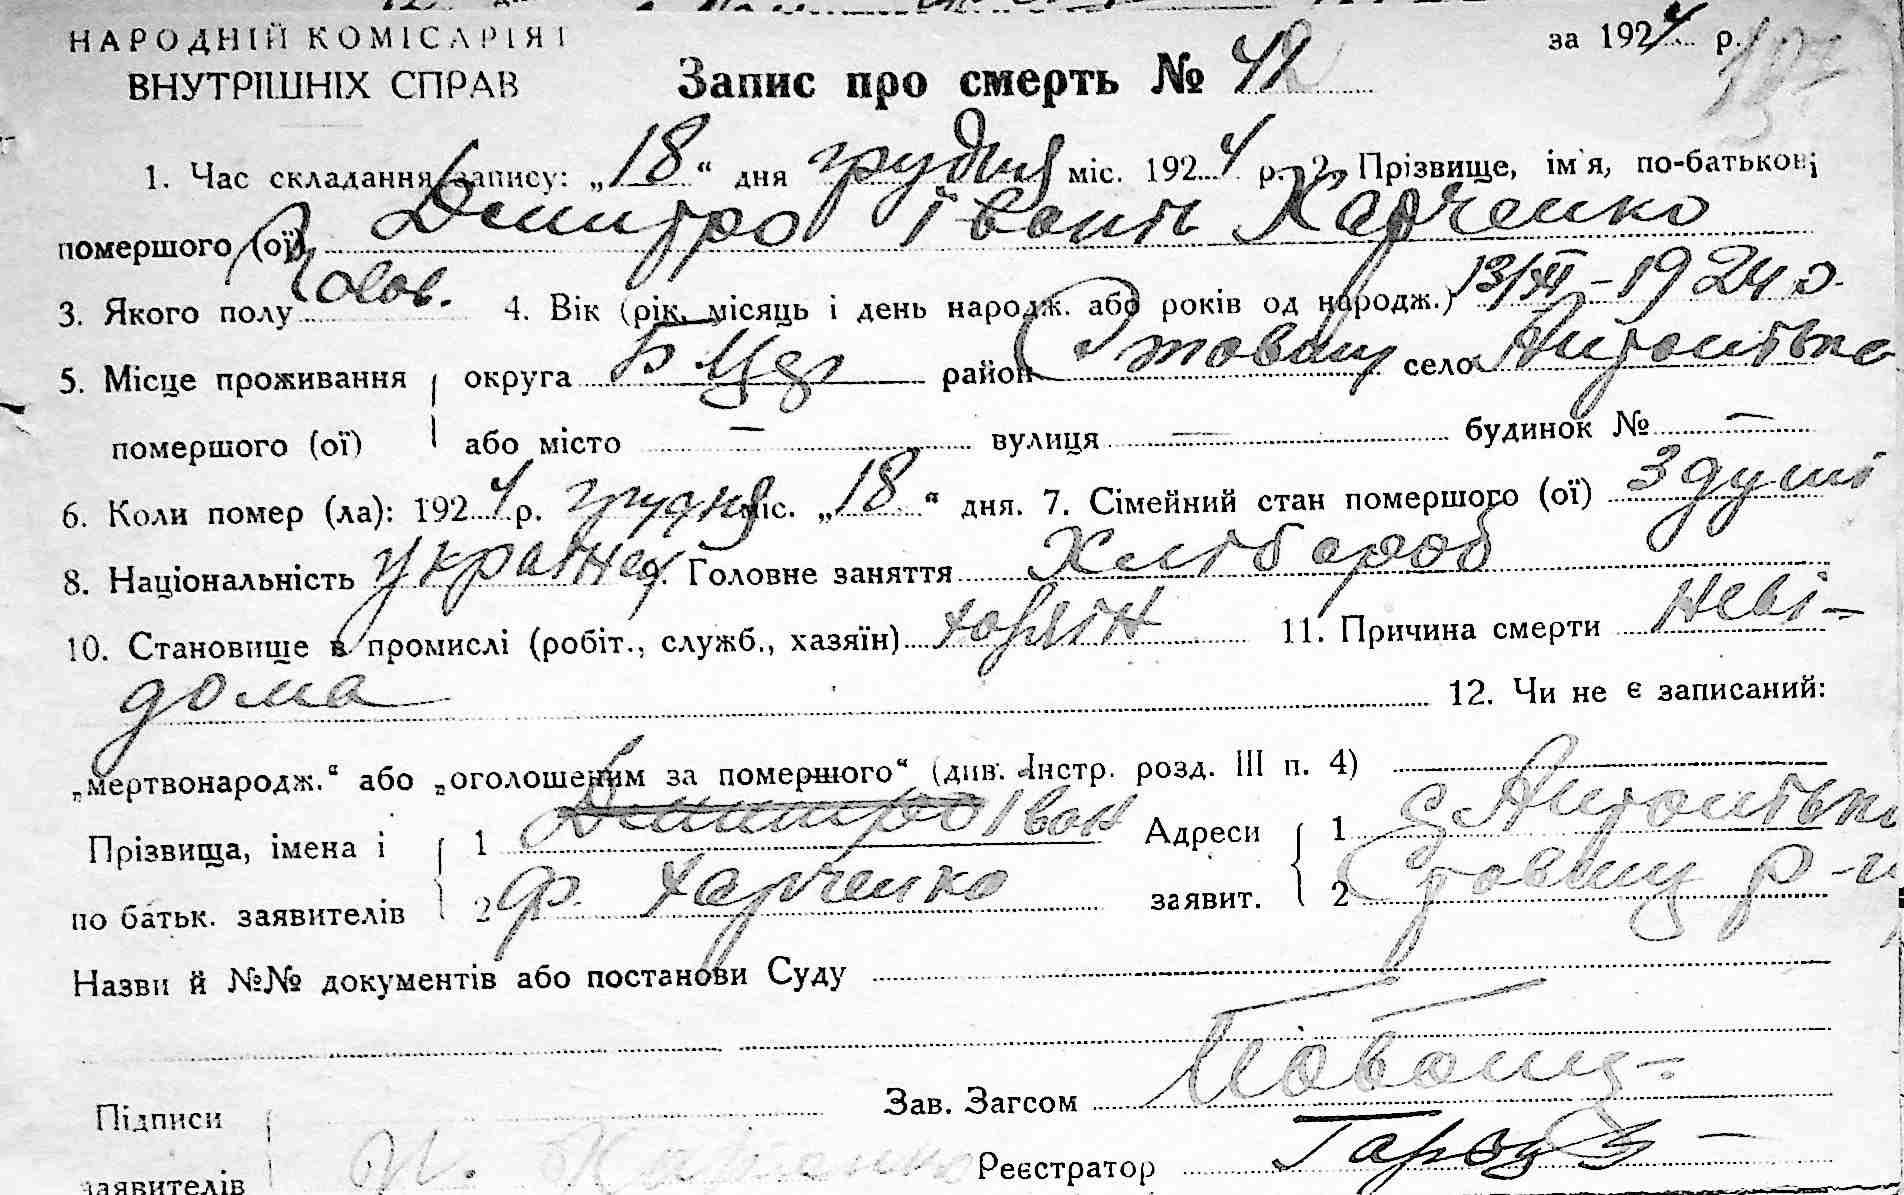 НАРОДНІЙ КОМІСАРІЯТ
ВНУТРІШНІХ СПРАВ
Запис про смерть № 42
за 1924 р.
1. Час складання запису: „18“ дня грудня міс. 1924 р. 2. Прізвище, ім'я, по-батькові
помершого (ої) Дмитро Іван Харченко
3. Якого полу Чолов. 4. Вік (рік, місяць і день народж. або років од народж.) 13/XI - 1924 р.
5. Місце проживання округа Б Церк район Ставищ село Антонівка
помершого (ої) або місто — вулиця — будинок № —
6. Коли помер (ла): 1924 р. грудня міс. „18“ дня. 7. Сімейний стан помершого (ої) 3 душі
8. Національність українец 9. Головне заняття Хлібороб
10. Становище в промислі (робіт., служб., хазяїн) хазяїн 11. Причина смерти неві-
дома 12. Чи не є записаний:
„мертвонародж.“ або „оголошеним за помершого“ (див. Інстр. розд. III п. 4)
Прізвища, імена і 1 Дмитро Іван Адреси 1 с. Антонівка
по батьк. заявителів 2 Ф. Харченко заявит. 2 Ставищ р-н
Назви й №№ документів або постанови Суду
Підписи Зав. Загсом
заявителів Реєстратор